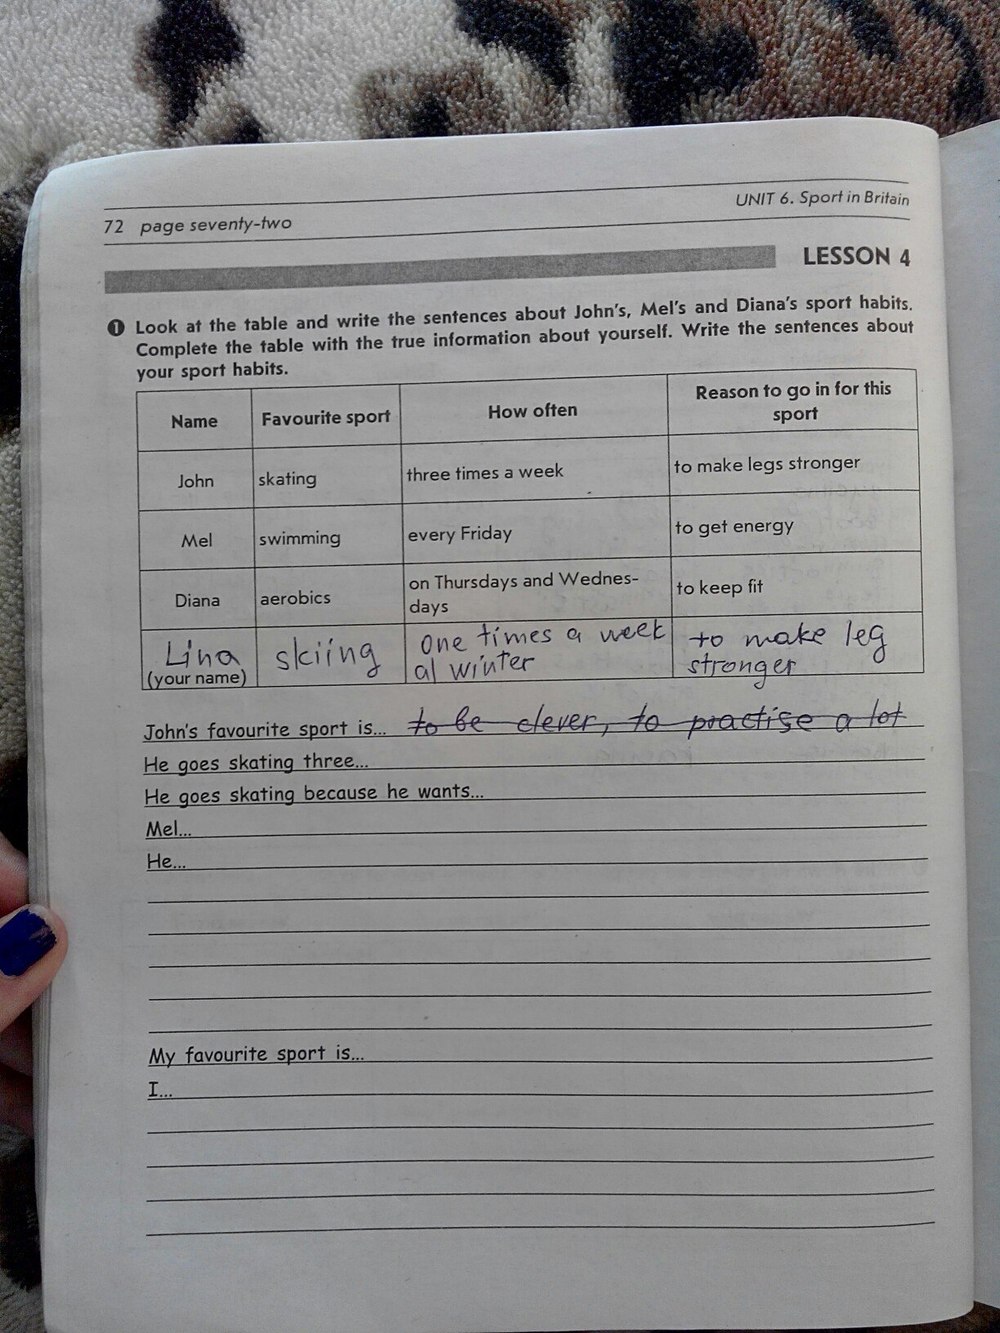 72 page seventy-two
UNIT 6. Sport in Britain
LESSON 4
1 Look at the table and write the sentences about John's, Mel's and Diana's sport habits.
Complete the table with the true information about yourself. Write the sentences about
your sport habits.
Name Favourite sport How often Reason to go in for this
sport
John skating three times a week to make legs stronger
Mel swimming every Friday to get energy
Diana aerobics on Thursdays and Wednes-
days to keep fit
Lina skiing one times a week
al winter to make leg
stronger
(your name)
John's favourite sport is... to be clever, to practise a lot
He goes skating three...
He goes skating because he wants...
Mel...
He...
My favourite sport is...
I...